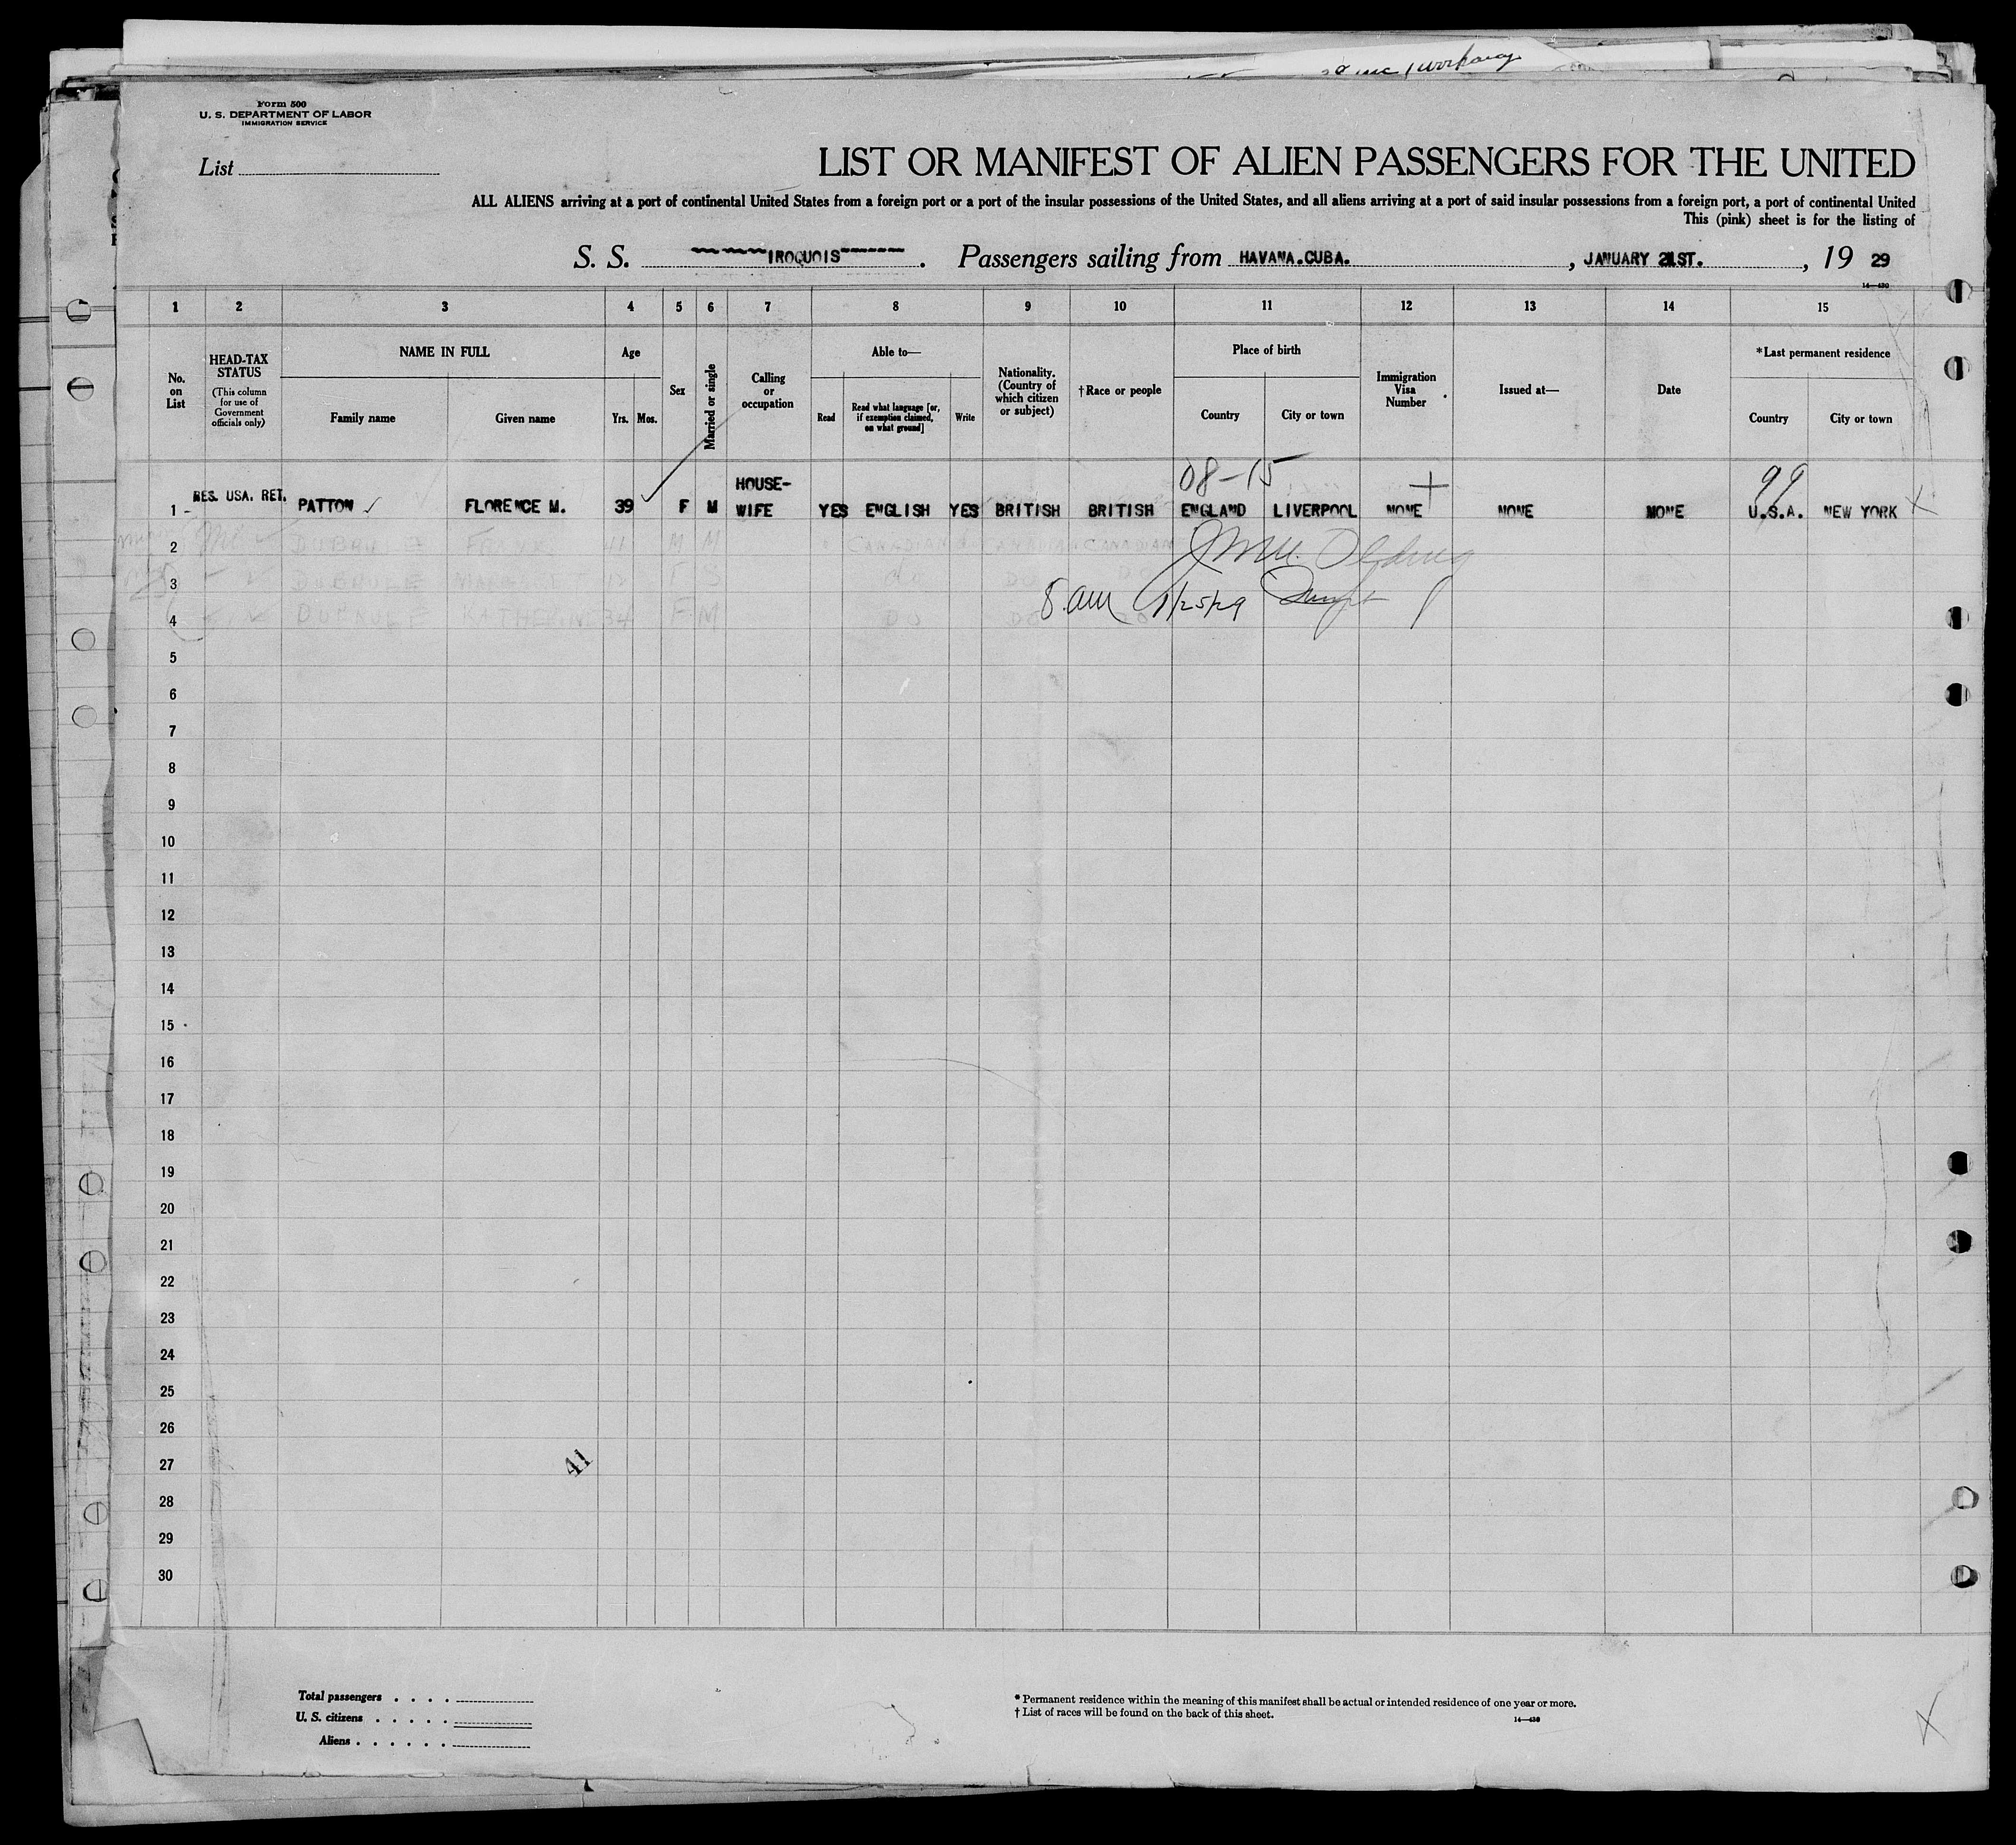 Form 500
U. S. DEPARTMENT OF LABOR
IMMIGRATION SERVICE
List
LIST OR MANIFEST OF ALIEN PASSENGERS FOR THE UNITED
ALL ALIENS arriving at a port of continental United States from a foreign port or a port of the insular possessions of the United States, and all aliens arriving at a port of said insular possessions from a foreign port, a port of continental United
This (pink) sheet is for the listing of
S. S. IROQUOIS. Passengers sailing from HAVANA.CUBA. , JANUARY 21ST. , 19 29
14—430
1 2 3 4 5 6 7 8 9 10 11 12 13 14 15
No. on List
HEAD-TAX STATUS
(This column for use of Government officials only)
NAME IN FULL
Family name
Given name
Age
Yrs.
Mos.
Sex
Married or single
Calling or occupation
Able to—
Read
Read what language [or, if exemption claimed, on what ground]
Write
Nationality. (Country of which citizen or subject)
†Race or people
Place of birth
Country
City or town
Immigration Visa Number
Issued at—
Date
*Last permanent residence
Country
City or town
08-15
99
1 RES. USA. RET. PATTON FLORENCE M. 39 F M HOUSE-WIFE YES ENGLISH YES BRITISH BRITISH ENGLAND LIVERPOOL NONE NONE NONE U.S.A. NEW YORK
2 M M CANADIAN CANADIAN CANADIAN
3 DUBRULE F S DO DO DO
8 am 1/25/29
4 DUBRULE KATHERINE 34 F M DO DO DO
5
6
7
8
9
10
11
12
13
14
15
16
17
18
19
20
21
22
23
24
25
26
27
41
28
29
30
Total passengers . . . .
U. S. citizens . . . . .
Aliens . . . . . .
* Permanent residence within the meaning of this manifest shall be actual or intended residence of one year or more.
† List of races will be found on the back of this sheet.
14—430